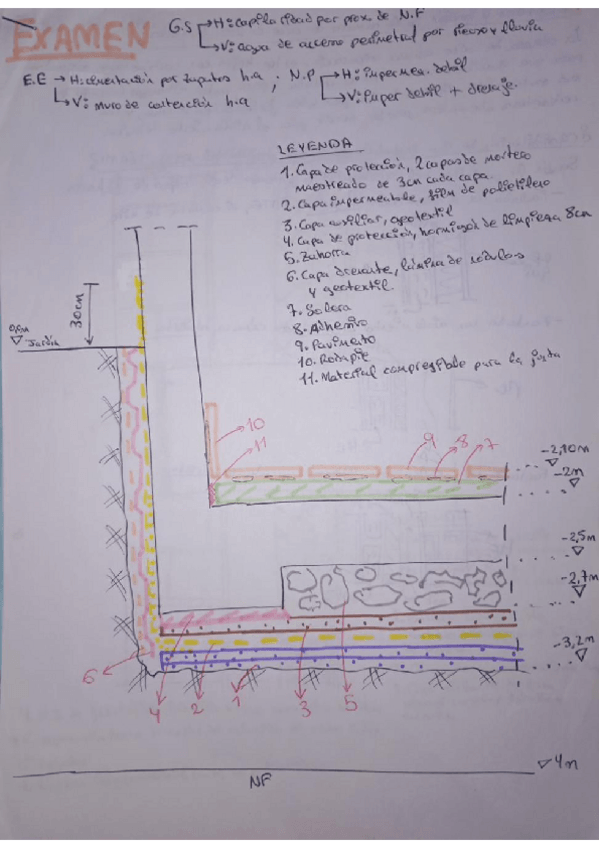 EXAMEN
G.S → H: capilaridad por prox de N.F
V: agua de acceso perimetral por riego y lluvia
E.E → H: cimentación por zapatas h.a ; N.P → H: impermea. debil
V: muro de contención h.a
V: imper debil + drenaje.
LEYENDA
1. Capa de protección, 2 capas de mortero
maestreado de 3cm cada capa.
2. Capa impermeable, film de polietileno
3. Capa auxiliar, geotextil
4. Capa de protección, hormigón de limpieza 8cm
5. Zahorra
6. Capa drenante, lámina de nódulos
y geotextil.
7. Solera
8. Adhesivo
9. Pavimento
10. Rodapié
11. Material compresible para la junta
30cm
0,0m
Jardin
10
11
9
8
7
-2,10m
-2m
-2,5m
-2,7m
-3,2m
6
4
2
1
3
5
4m
NF